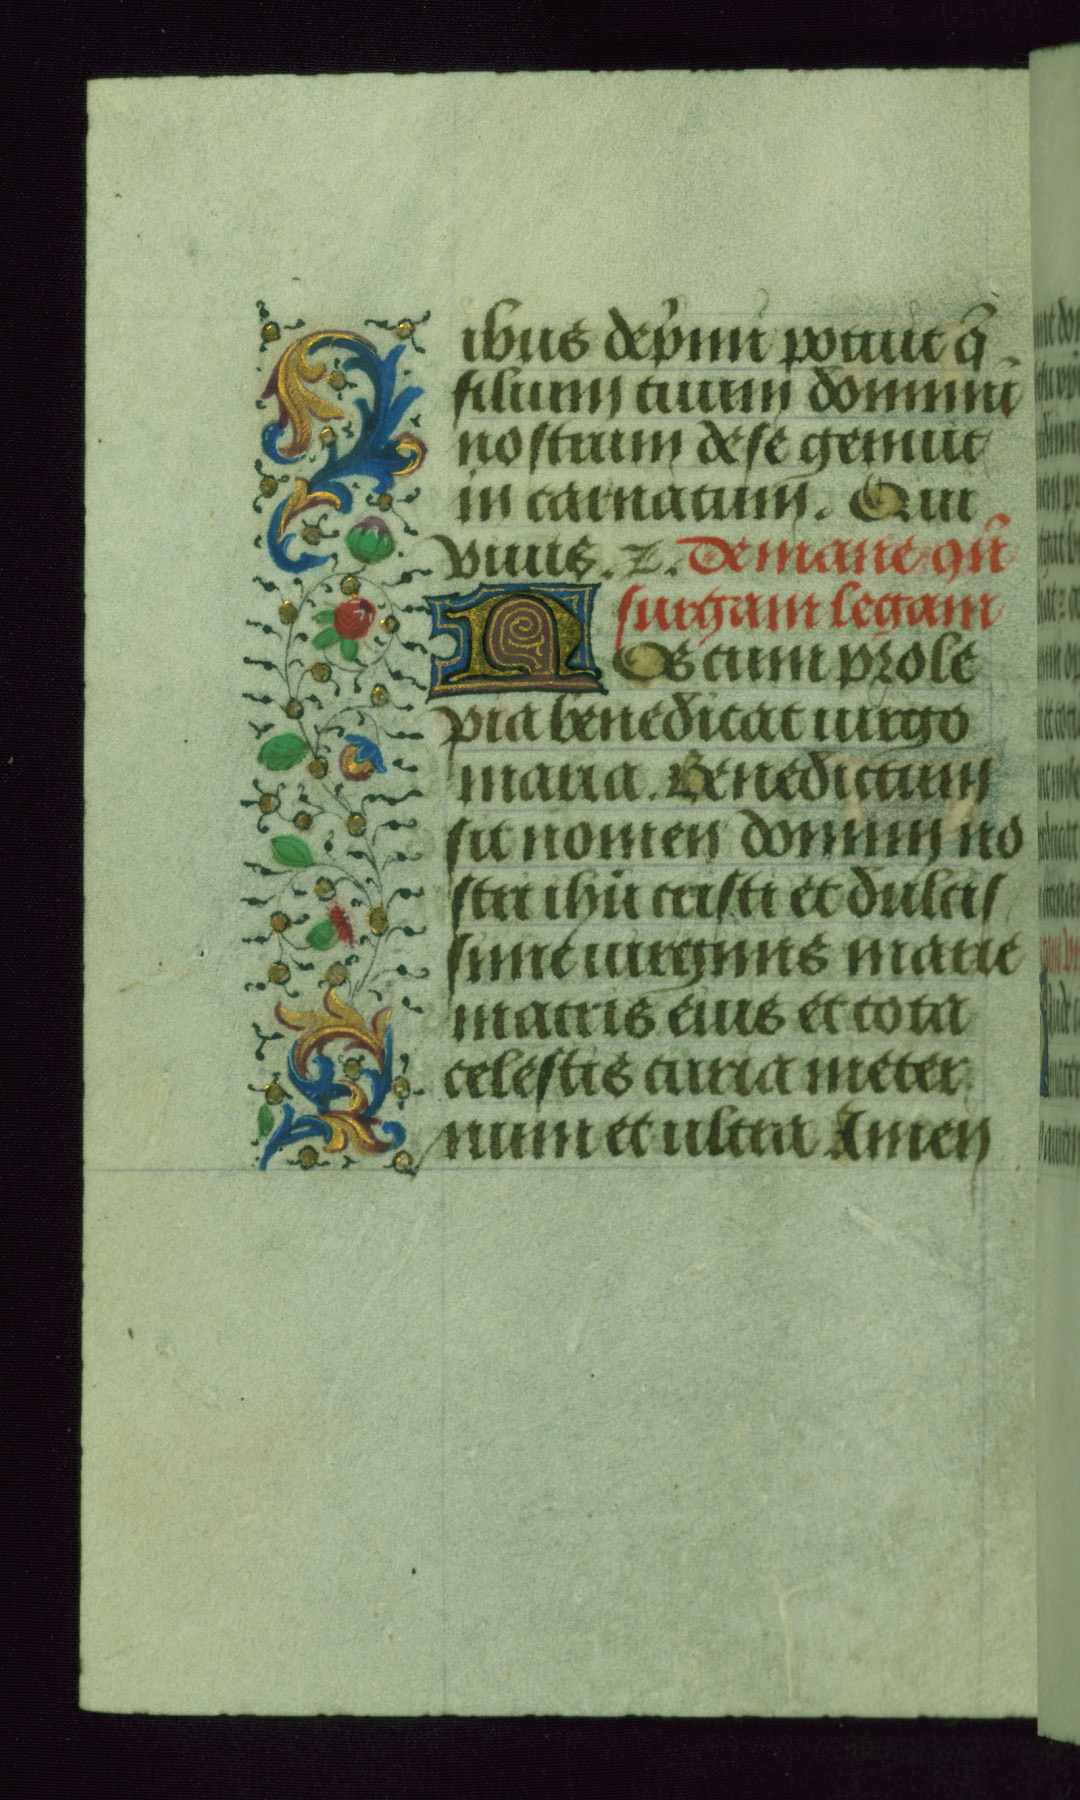 ibus dep̄mi potuit q̄
filium tuum dominū
nostrum de se genuit
in carnatum. Qui
viuis. ⁊. De mane qn̄
surgam legam
Nos cum prole
pia benedicat uirgo
maria. Benedictum
sit nomen domini no
stri ihū cristi et dulcis
sime uirginis marie
matris eius et tota
celestis curia in eter
num et ultra Amen